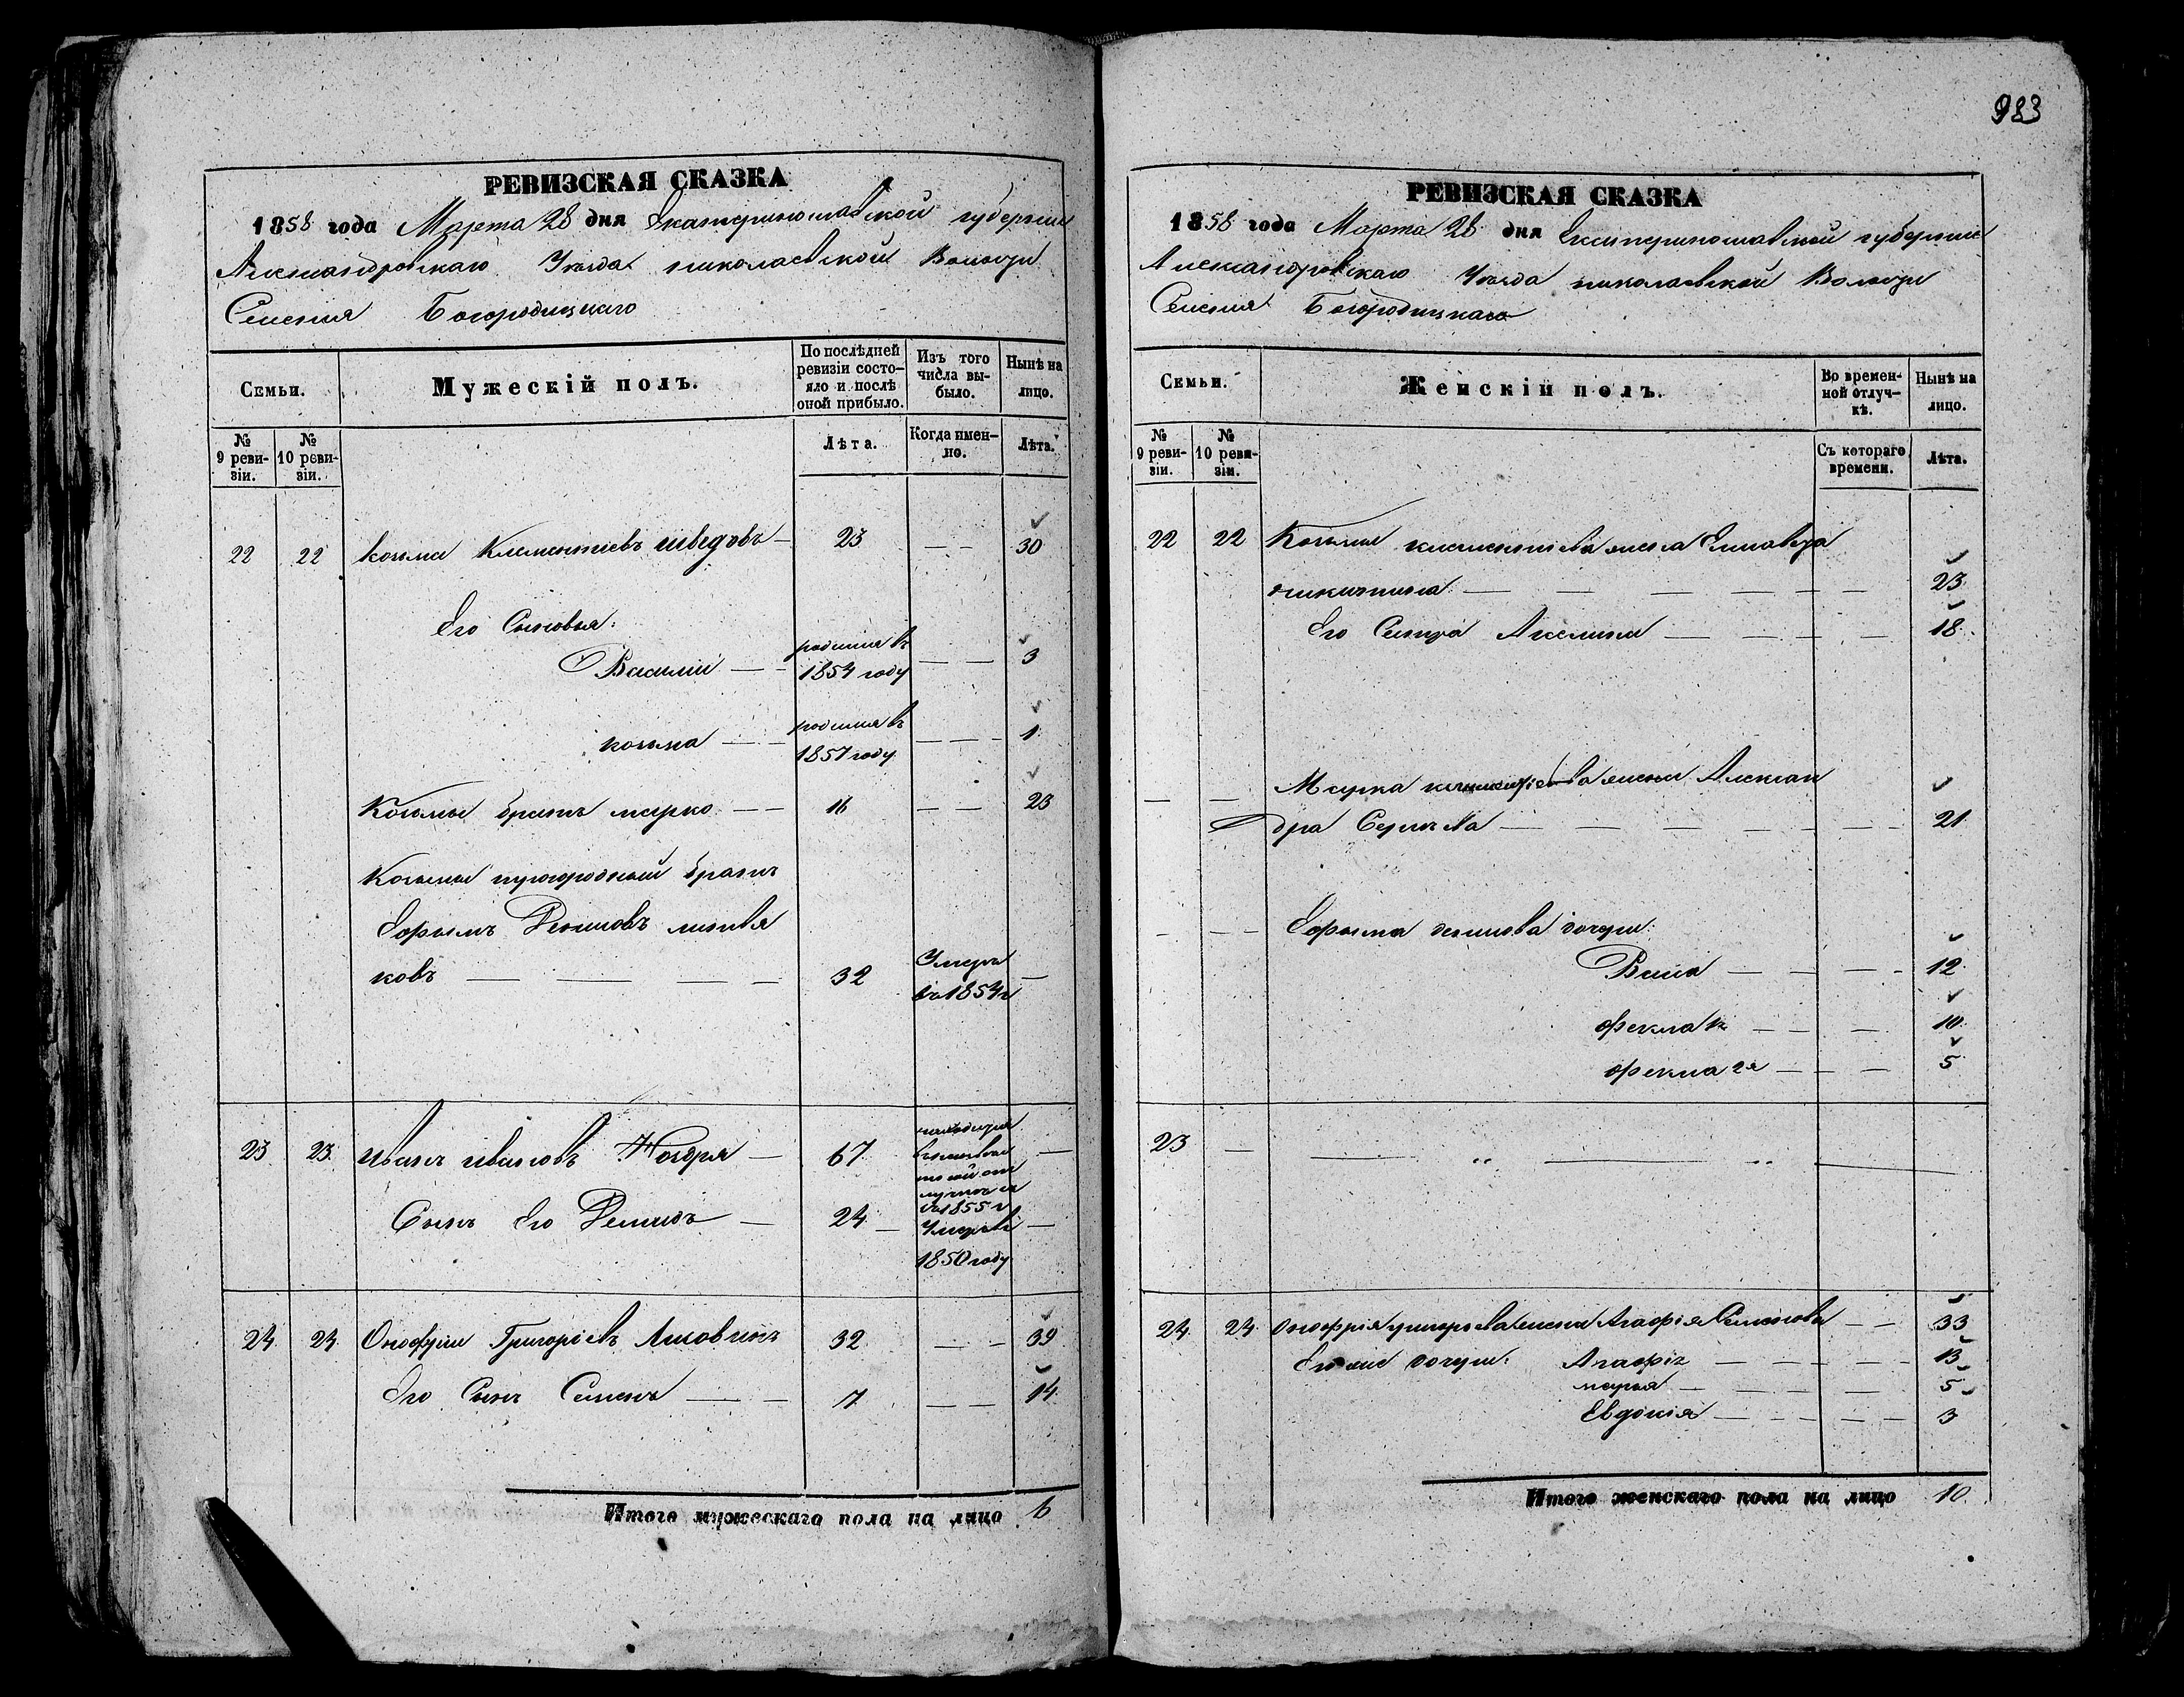 983
РЕВИЗСКАЯ СКАЗКА
1858 года Марта 28 дня Екатеринославской губернии
Александровскаго Уѣзда николаевской Волости
Селения Богородицкаго
Семьи.
Мужескій полъ.
По послѣдней ревизіи состо-
яло и послѣ оной прибыло.
Изъ того числа вы-
было.
Нынѣ на лицо.
№ 9 реви-
зіи.
№ 10 реви-
зіи.
Лѣта.
Когда имен-
но.
Лѣта.
22 22 козьма Клементиевъ шведовъ 23 30
Его Сыновья:
Василий родился въ 1854 году 3
козьма родился въ 1857 году 1
Козьмы братъ марко 16 23
Козьмы
братъ
Ефимъ Денисовъ
ковъ 32 Умеръ в 1854 г
23 23 иванъ ивановъ 67
1855 г
Сынъ его Демидъ 24 Умеръ в 1850 году
24 24 Онофрий Григориевъ 32 39
Его Сынъ Семенъ 7 14
Итого мужескаго пола на лицо 6
РЕВИЗСКАЯ СКАЗКА
1858 года Марта 28 дня Екатеринославской губернии
Александровскаго Уѣзда николаевской Волости
Селения Богородицкаго
Семьи.
Женскій полъ.
Во времен-
ной отлуч-
кѣ.
Нынѣ на лицо.
№ 9 реви-
зіи.
№ 10 реви-
зіи.
Съ котораго времени.
Лѣта.
22 22 Козьмы клементиева жена Елисавета
никитина 23
Его Сестра Акелина 18
Марка клементиева жена Алексан
дра 21
Ефима денисова дочери:
Васса 12
фекла 1я 10
фекла 2я 5
23
24 24 Онофрія григорьева жена Агафія Семенова 33
Его же дочери: Агафія 13
марья 5
Евдокія 3
Итого женскаго пола на лицо 10